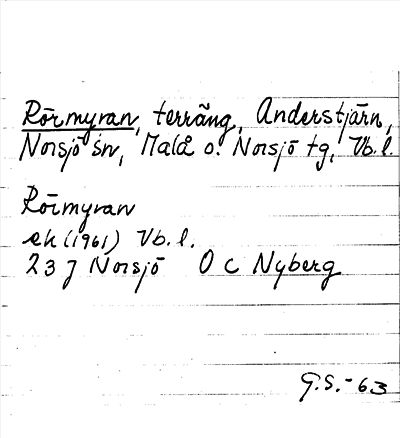 Rörmyran, terräng, Anderstjärn,
Norsjö sn, Malå o. Norsjö tg, Vb. l.
Rörmyran
ek (1961) Vb. l.
23 J Norsjö O C Nyberg
G.S.-63